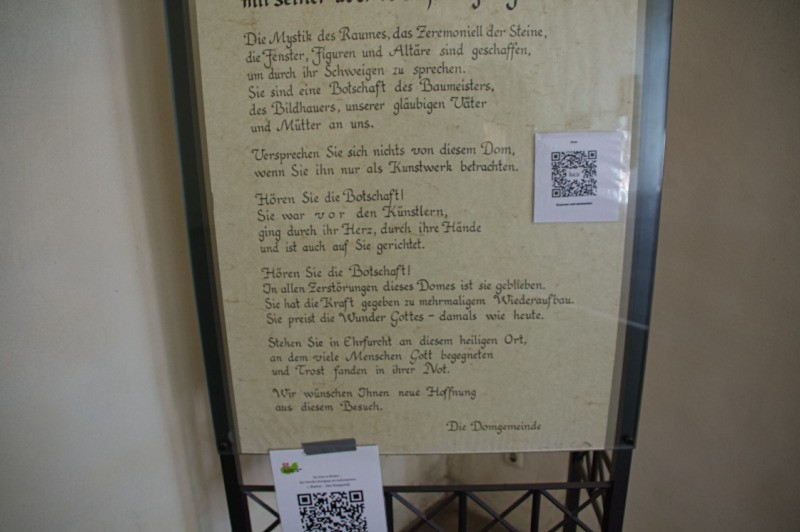 mit seiner
Die Mystik des Raumes, das Zeremoniell der Steine,
die Fenster, Figuren und Altäre sind geschaffen,
um durch ihr Schweigen zu sprechen.
Sie sind eine Botschaft des Baumeisters,
des Bildhauers, unserer gläubigen Väter
und Mütter an uns.
Versprechen Sie sich nichts von diesem Dom,
wenn Sie ihn nur als Kunstwerk betrachten.
Hören Sie die Botschaft!
Sie war vor den Künstlern,
ging durch ihr Herz, durch ihre Hände
und ist auch auf Sie gerichtet.
Hören Sie die Botschaft!
In allen Zerstörungen dieses Domes ist sie geblieben.
Sie hat die Kraft gegeben zu mehrmaligem Wiederaufbau.
Sie preist die Wunder Gottes - damals wie heute.
Stehen Sie in Ehrfurcht an diesem heiligen Ort,
an dem viele Menschen Gott begegneten
und Trost fanden in ihrer Not.
Wir wünschen Ihnen neue Hoffnung
aus diesem Besuch.
Die Domgemeinde